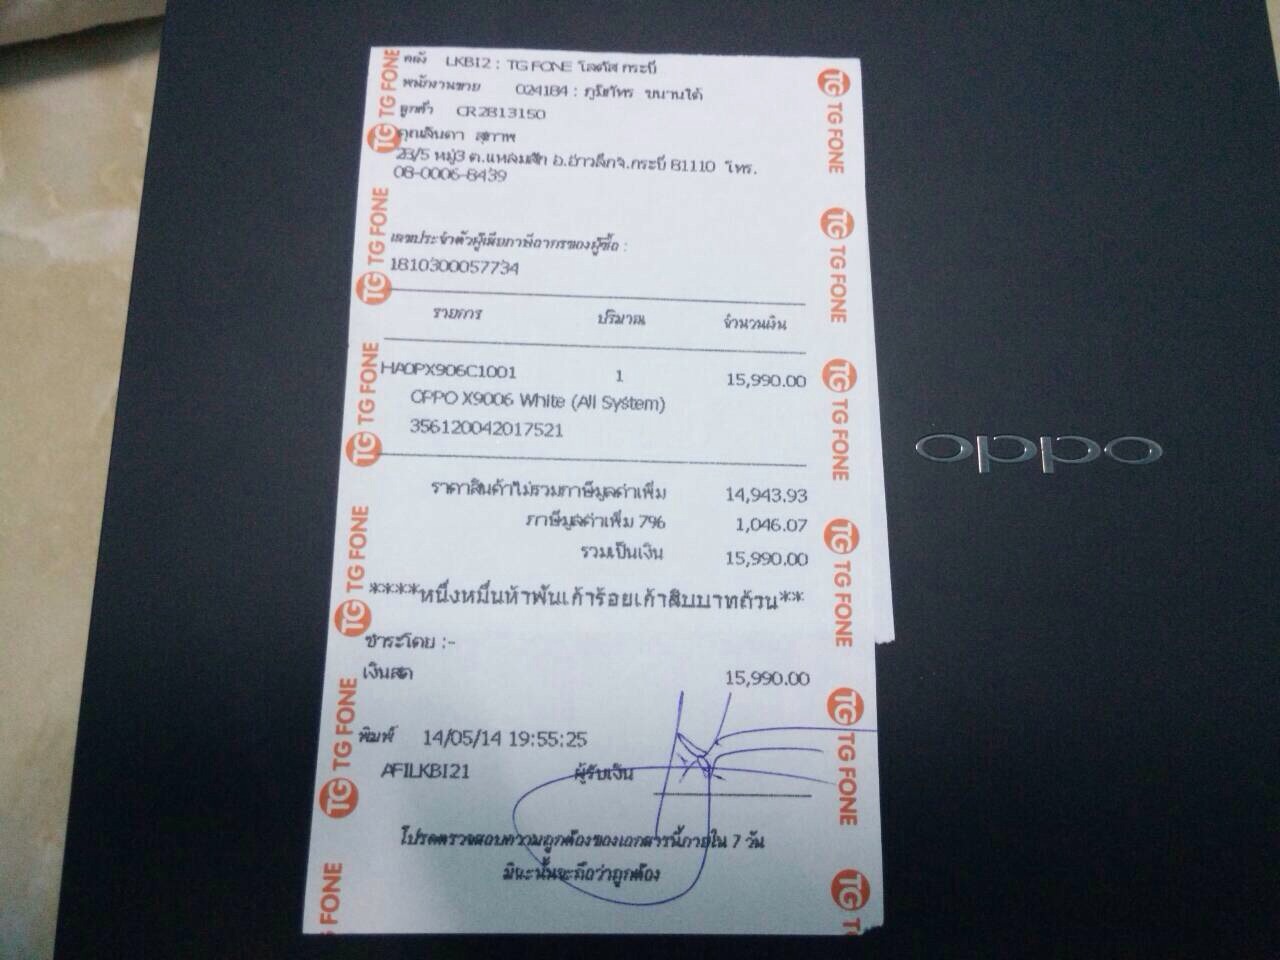 คลัง LKBI2 : TG FONE โลตัส กระบี่
พนักงานขาย 024184 : ภูมิภัทร ขนานใต้
ลูกค้า CR2B13150
คุณจินดา สุภาพ
23/5 หมู่3 ต.แหลมสัก อ.อ่าวลึกจ.กระบี่ 81110 โทร.
08-0006-8439
เลขประจำตัวผู้เสียภาษีอากรของผู้ซื้อ :
1810300057734
รายการ ปริมาณ จำนวนเงิน
HAOPX906C1001 1 15,990.00
OPPO X9006 White (All System)
356120042017521
ราคาสินค้าไม่รวมภาษีมูลค่าเพิ่ม 14,943.93
ภาษีมูลค่าเพิ่ม 7% 1,046.07
รวมเป็นเงิน 15,990.00
****หนึ่งหมื่นห้าพันเก้าร้อยเก้าสิบบาทถ้วน**
ชำระโดย :-
เงินสด 15,990.00
พิมพ์ 14/05/14 19:55:25
AFILKBI21 ผู้รับเงิน
โปรดตรวจสอบความถูกต้องของเอกสารนี้ภายใน 7 วัน
มิฉะนั้นจะถือว่าถูกต้อง
TG FONE
oppo